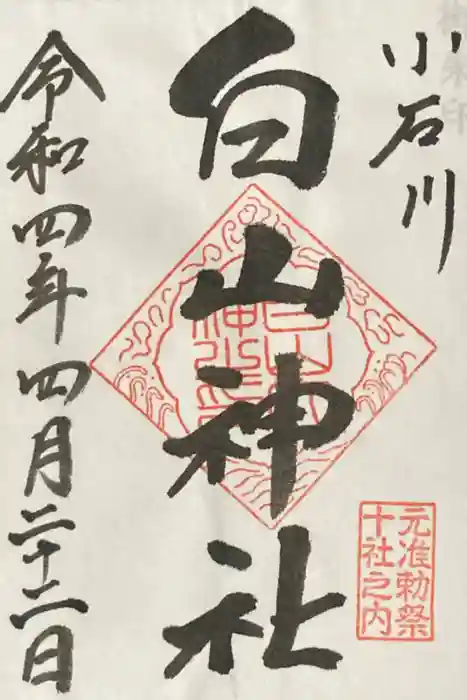 小石川
白山神社
令和四年四月二十二日
元准勅祭
十社之内